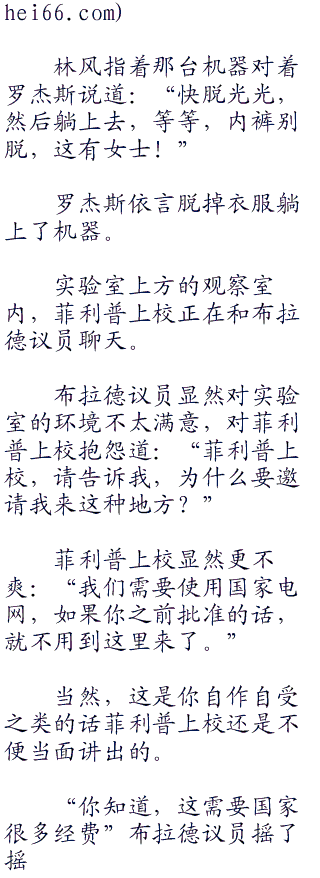 hei66.com)
林风指着那台机器对着
罗杰斯说道：“快脱光光，
然后躺上去，等等，内裤别
脱，这有女士！”
罗杰斯依言脱掉衣服躺
上了机器。
实验室上方的观察室
内，菲利普上校正在和布拉
德议员聊天。
布拉德议员显然对实验
室的环境不太满意，对菲利
普上校抱怨道：“菲利普上
校，请告诉我，为什么要邀
请我来这种地方？”
菲利普上校显然更不
爽：“我们需要使用国家电
网，如果你之前批准的话，
就不用到这里来了。”
当然，这是你自作自受
之类的话菲利普上校还是不
便当面讲出的。
“你知道，这需要国家
很多经费”布拉德议员摇了
摇